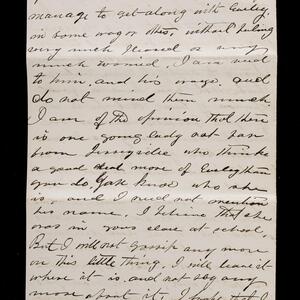 manage to get along with
in some way or other, without being
very much bored or very
much worried. I am used
to him, and his ways, and
do not mind them much.
I am of the opinion that there
is one young lady not far
from who thinks
a good deal more of than
you do. You know who she
is, and I need not mention
his name. I believe that she
was in your class at school,
But I will not gossip any more
on this little thing. I will leave it
where it is, and not say any
more about it. I hope